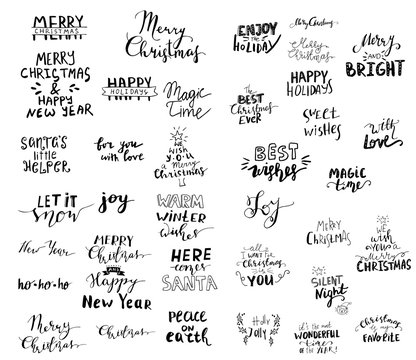 MERRY
CHRISTMAS
Merry
Christmas
ENJOY
the
HOLIDAY
Merry Christmas
Merry
Christmas
Merry
AND
BRIGHT
MERRY
CHRISTMAS
&
HAPPY
NEW YEAR
HAPPY
HOLIDAYS
Magic
Time
the
BEST
CHRISTMAS
EVER
HAPPY
HOLIDAYS
sweet
wishes
with
Love
SANTA'S
little
HELPER
for you
with love
We
WISH
YOU
a Merry
Christmas
BEST
wishes
MAGIC
time
LET IT
snow
joy
WARM
WINTER
wishes
Joy
MERRY
CHRISTMAS
We
WISH
you a
MERRY
CHRISTMAS
New Year
MERRY
Christmas
HERE
comes
SANTA
all I
want for
Christmas
is
YOU
SILENT
Night
ho-ho-ho
Happy
New Year
Merry
Christmas
Christmas
PEACE
on
earth
Holly
Jolly
it's the most
WONDERFUL
time
OF THE YEAR!
Christmas
is my
FAVORITE